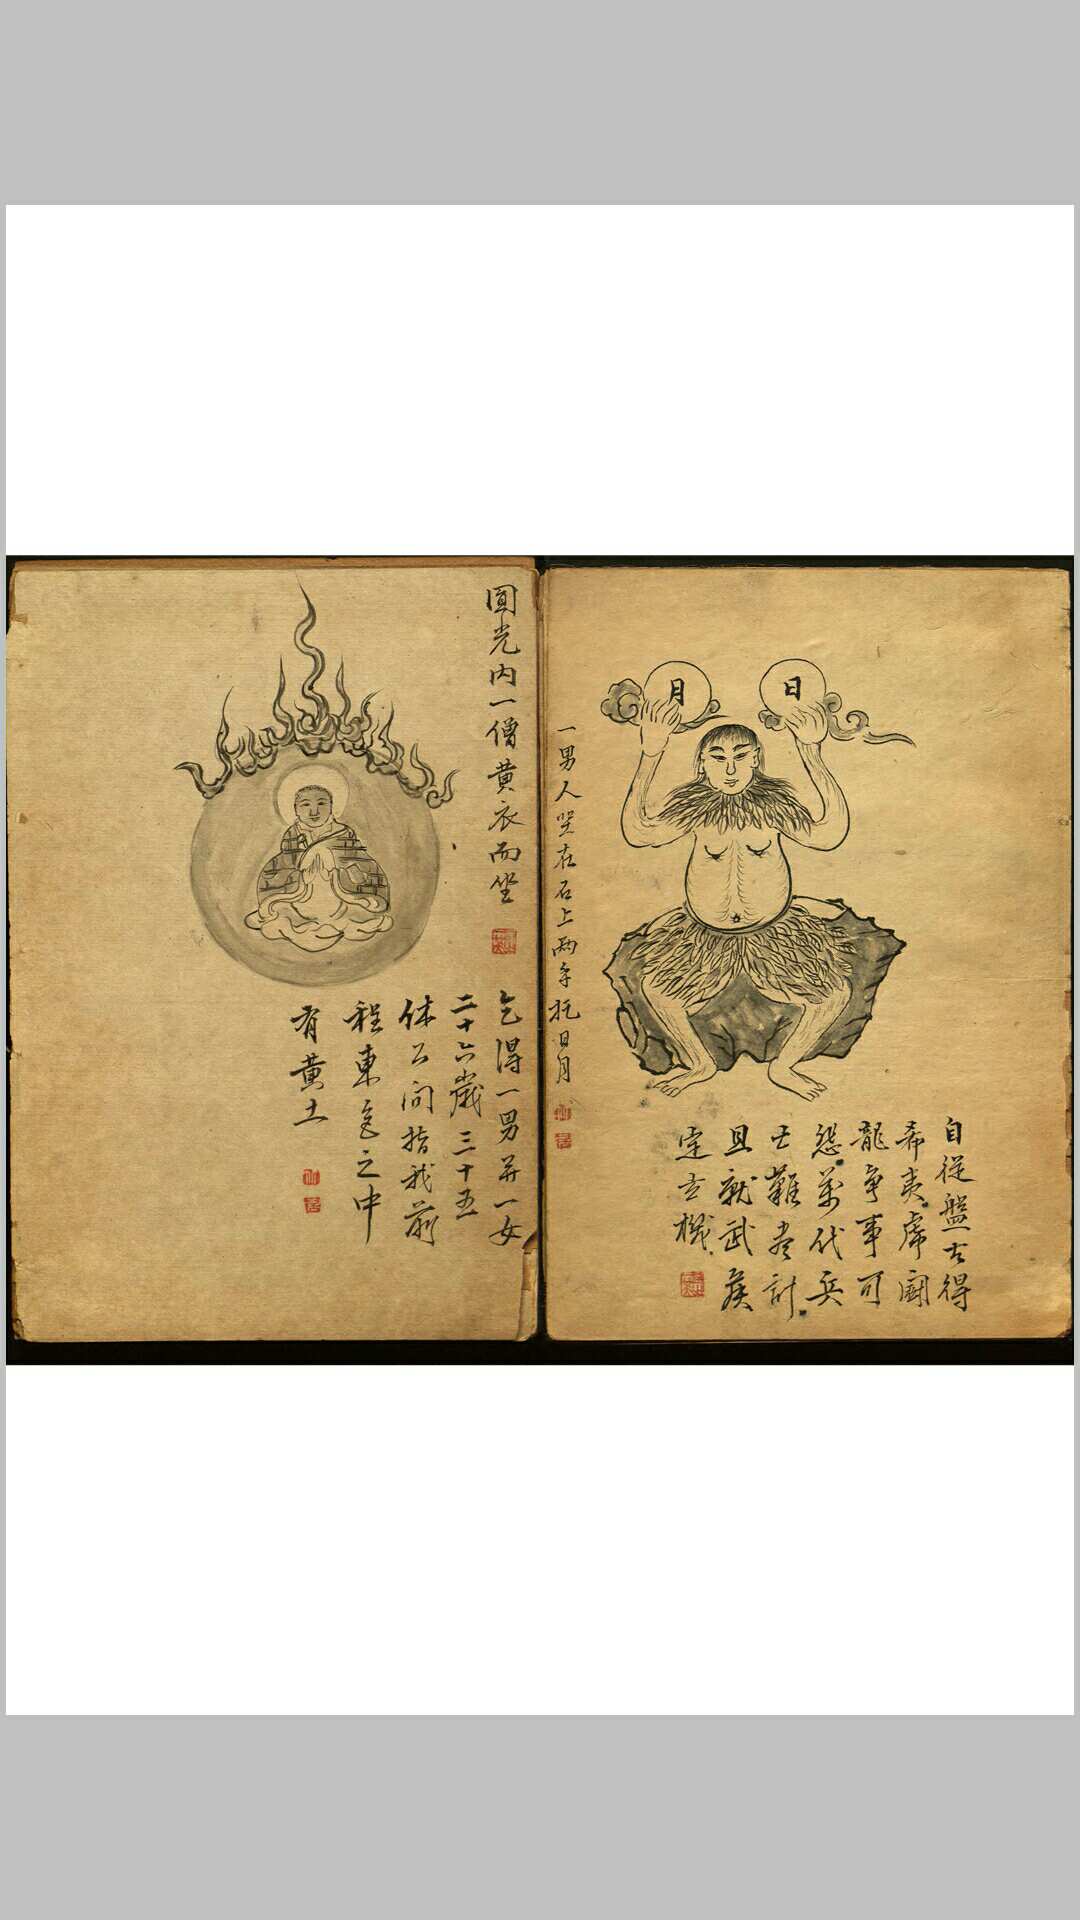 月
日
自從盤古得
希夷虎鬪
龍爭事可
怨萬代兵
亡難盡討
且就武侯
定玄機
一男人坐在石上兩手托日月
圓光內一僧黃衣而坐
乞得一男并一女
二十六歲三十五
休公問指我前
程東邑之中
有黃土